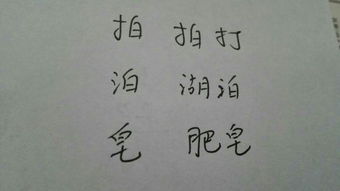 拍 拍打
泊 湖泊
皂 肥皂